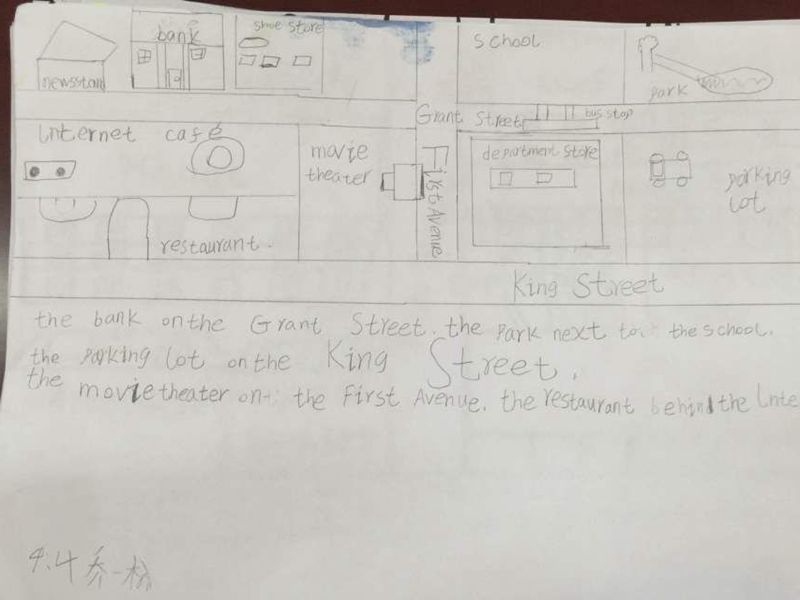 newsstand
bank
shoe store
school
park
Grant Street
bus stop
Internet café
movie
theater
First Avenue
department store
parking
lot
restaurant.
King Street
the bank on the Grant Street. the park next to the school.
the parking lot on the King Street.
the movie theater on the First Avenue. the restaurant behind the Inte
4.4 乔一